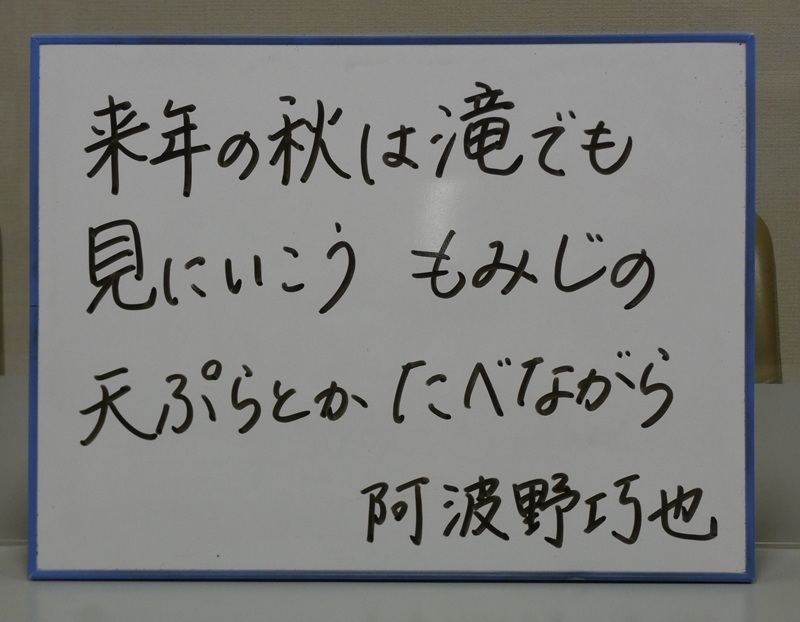 来年の秋は滝でも
見にいこう　もみじの
天ぷらとか たべながら
阿波野巧也